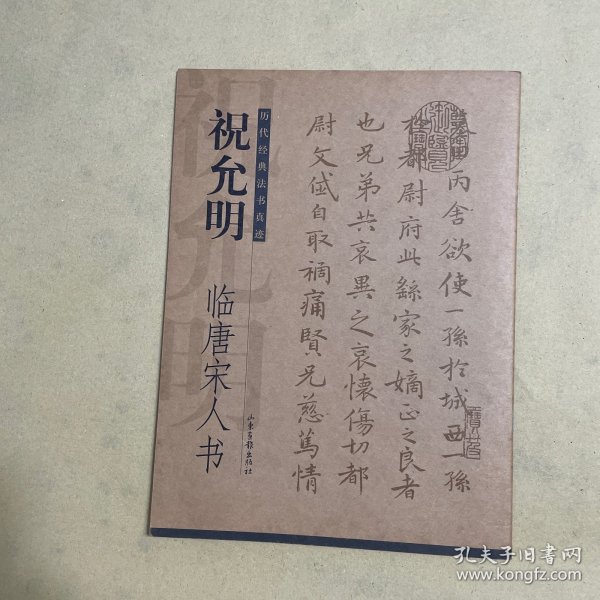 历代经典法书真迹
祝允明
临唐宋人书
山东画报出版社
丙舍欲使一孫於城西一孫
都尉府此繇家之嫡正之良者
也兄弟共哀異之哀懷傷切都
尉文俗自取禍痛賢兄慈篤情
孔夫子旧书网
www.kongfz.com